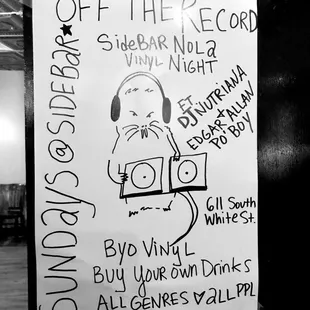 OFF THE RECORD
SideBAR NOLA
VINYL NIGHT
FT
DJ NUTRIANA
+
EDGAR ALLAN
PO BOY
SUNDAYS @ SIDEBAR★
611 South
White St.
BYO VINYL
BUY YOUR OWN DRINKS
ALL GENRES ♡ ALL PPL